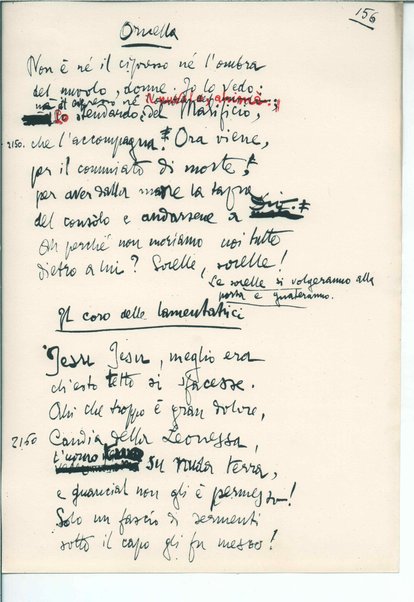 156
Ornella
Non è né il cipresso né l'ombra
del nuvolo, donne. Io lo vedo.
Lo stendardo del Malificio,
2150. che l'accompagna! Ora viene,
per il commiato di morte,
per aver dalla madre la tazza
del consòlo e andarsene a
Oh perché non moriamo noi tutte
dietro a lui? Sorelle, sorelle!
Le sorelle si volgeranno alla
porta e guateranno.
Il coro delle lamentatrici
Jesu Jesu, meglio era
chi esto tetto si sfacesse.
Ohi che troppo è gran dolore,
2150 Candia della Leonessa,
su nuda terra,
e guancial non gli è permesso!
Solo un fascio di sermenti
sotto il capo gli fu messo!